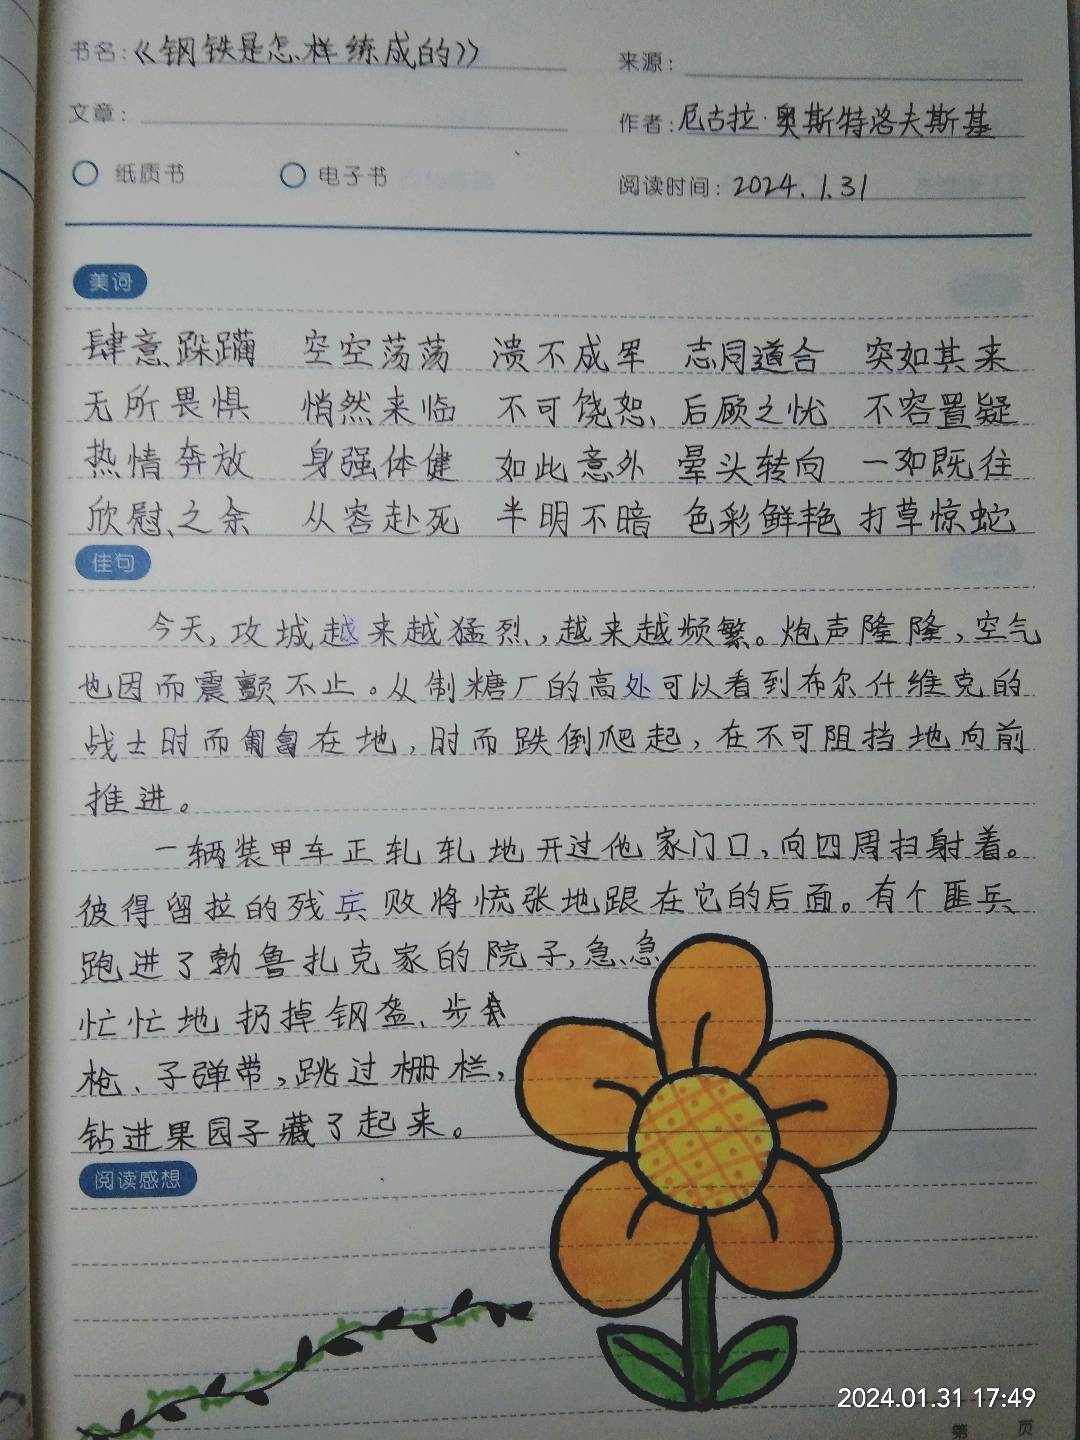 书名:《钢铁是怎样练成的》
来源:
文章:
作者:尼古拉·奥斯特洛夫斯基
纸质书 电子书
阅读时间:2024.1.31
美词
肆意跺躏 空空荡荡 溃不成军 志同道合 突如其来
无所畏惧 悄然来临 不可饶恕、后顾之忧 不容置疑
热情奔放 身强体健 如此意外 晕头转向 一如既往
欣慰之余 从容赴死 半明不暗 色彩鲜艳 打草惊蛇
佳句
今天,攻城越来越猛烈,越来越频繁。炮声隆隆,空气
也因而震颤不止。从制糖厂的高处可以看到布尔什维克的
战士时而匍匐在地,时而跌倒爬起,在不可阻挡地向前
推进。
一辆装甲车正轧轧地开过他家门口,向四周扫射着。
彼得留拉的残兵败将慌张地跟在它的后面。有个匪兵
跑进了勃鲁扎克家的院子,急急
忙忙地扔掉钢盔、步
枪、子弹带,跳过栅栏,
钻进果园子藏了起来。
阅读感想
2024.01.31 17:49
第 页